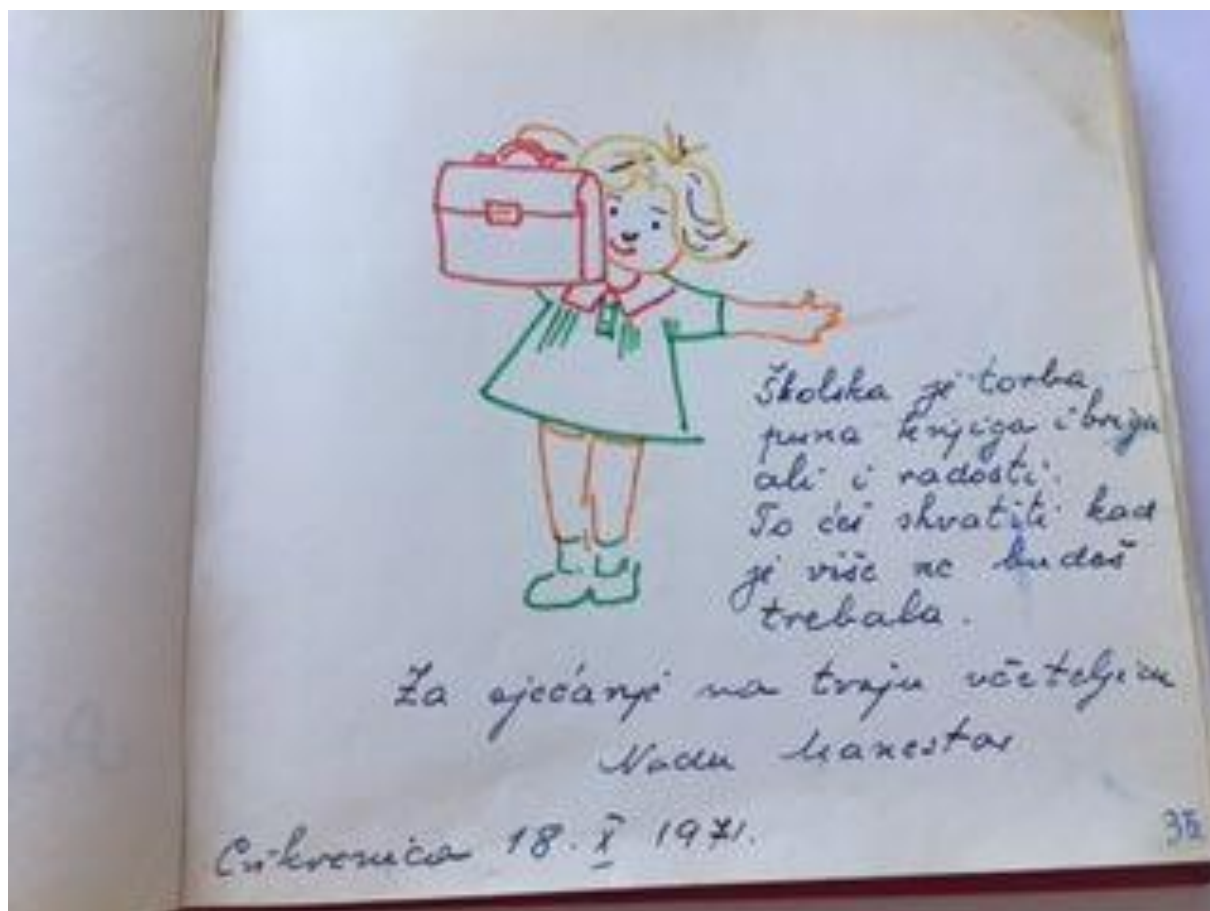 Školska je torba
puna knjiga i briga
ali i radosti.
To ćeš shvatiti kad
je više ne budeš
trebala.
Za sjećanje na tvoju učiteljicu
Nadu Manestar
Crikvenica 18. X 1971.